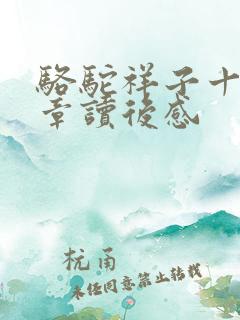 駱駝祥子十
章讀後感
杭甬
未经同意禁止转载